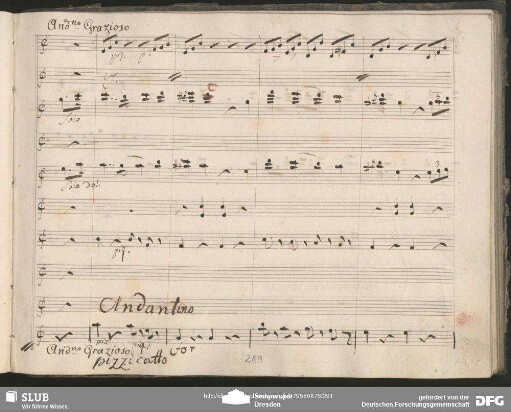 And.no Grazioso
piz. p.
Solo
Solo dol
piz.
Andantino
piz
And.no Grazioso
pizzicatto
289
SLUB
Wir führen Wissen.
Dresden
gefördert von der
Deutschen Forschungsgemeinschaft
DFG